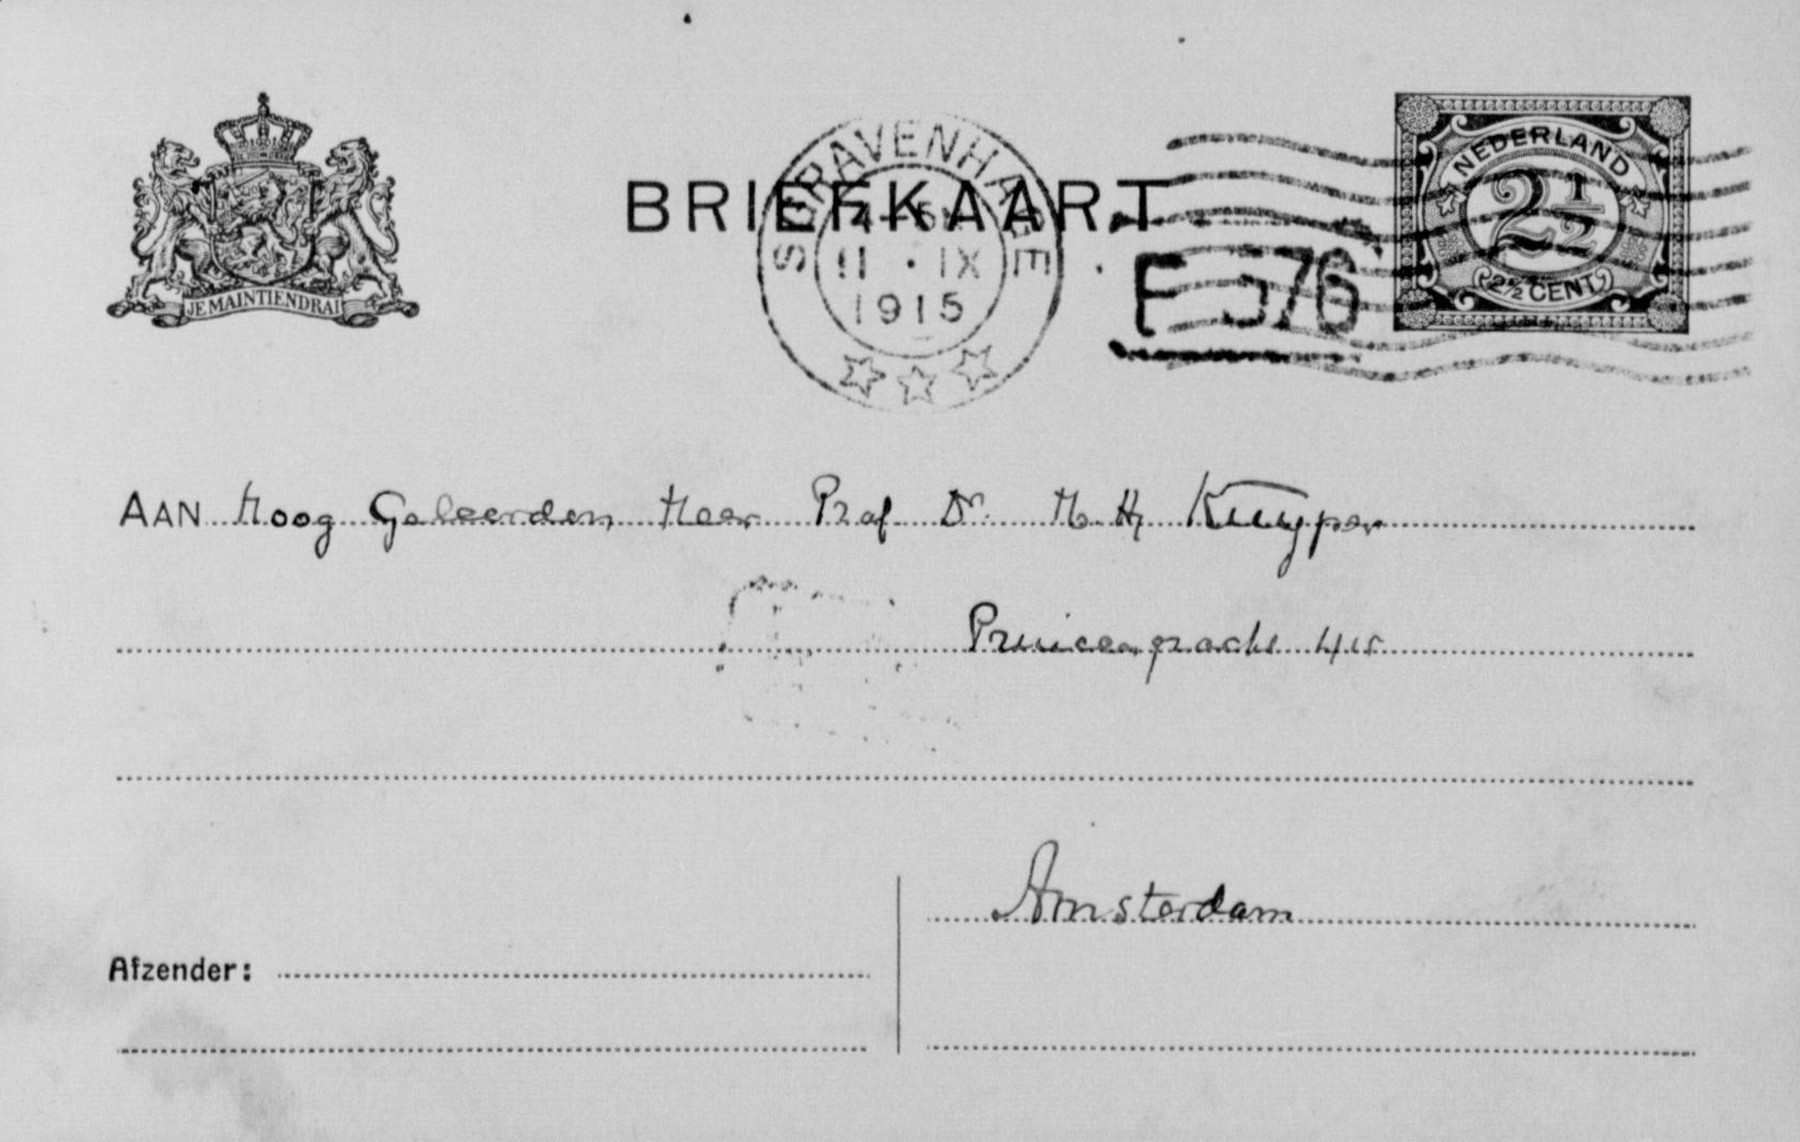 BRIEFKAART.
'S GRAVENHAGE
11 · IX
1915
NEDERLAND
2 1/2
2½ CENT
F 576
JE MAINTIENDRAI
AAN Hoog Geleerden Heer Prof Dr. H H Kuyper
Prinsengracht
Amsterdam
Afzender: